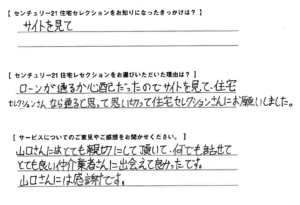 【 センチュリー21 住宅セレクションをお知りになったきっかけは？ 】
サイトを見て
【 センチュリー21 住宅セレクションをお選びいただいた理由は？ 】
ローンが通るか心配だったのでサイトを見て、住宅
セレクションさんなら通ると思って思い切って住宅セレクションさんにお願いしました。
【 サービスについてのご意見やご感想をお聞かせください。 】
山口さんにはとても親切にして頂いて、何でも話せて
とても良い仲介業者さんに出会えて良かったです。
山口さんには感謝です。